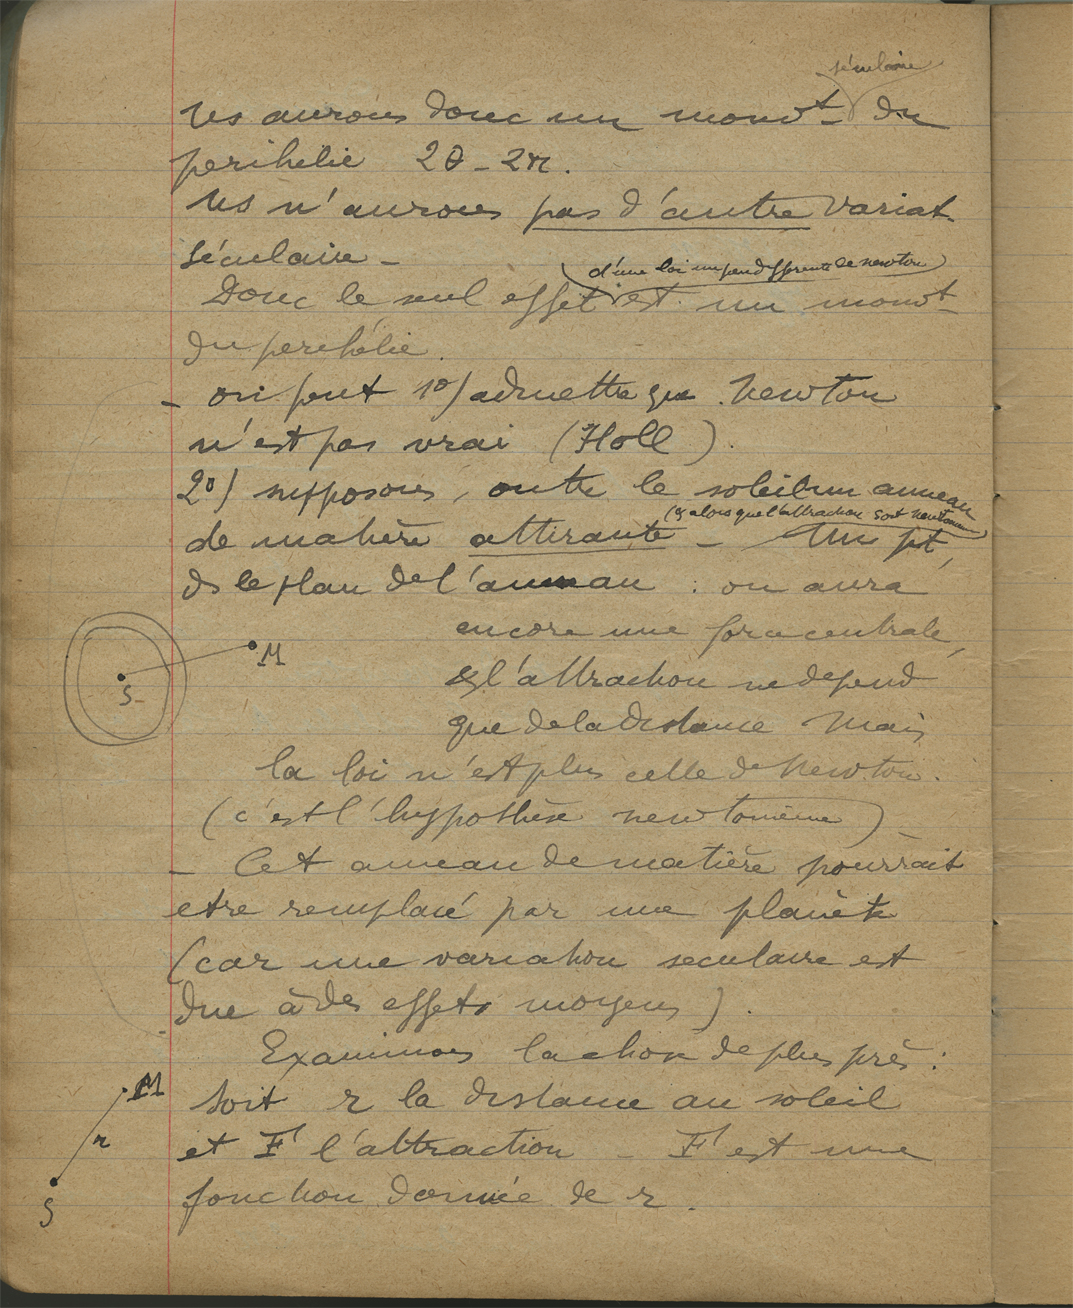 séculaire
Ns aurons donc un mouvt du
perihelie 2θ - 2π.
Ns n'aurons pas d'autre variat.
séculaire -
(d'une loi un peu differente de newton)
Donc le seul effet est un mouvt
du perihélie.
- on peut 1º) admettre que Newton
n'est pas vrai (Hall).
2º) supposons, outre le soleil un anneau
(& alors que l'attraction soit newtonienne)
de matière attirante - Un pt
ds le plan de l'anneau : on aura
encore une force centrale,
& l'attraction ne depend
que de la distance Mais
la loi n'est plus celle de Newton.
(c'est l'hypothèse newtonienne) -
- Cet anneau de matière pourrait
etre remplacé par une planète
(car une variation seculaire est
due à des effets moyens).
Examinons la chose de plus près :
Soit r la distance au soleil
et F l'attraction - F est une
fonction donnée de r.
M
S
M
r
S